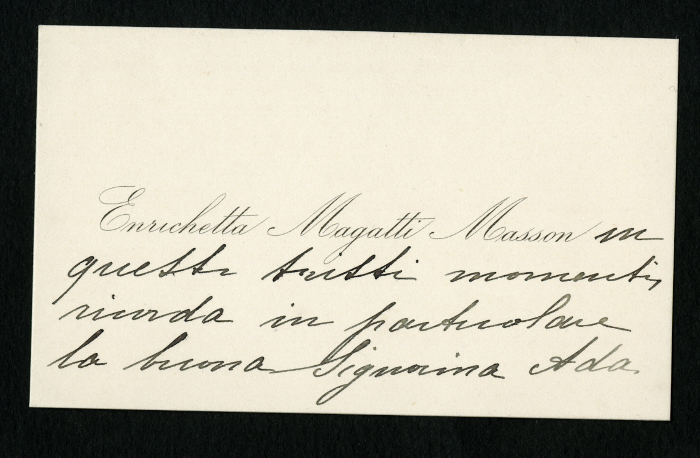 Enrichetta Magatti Masson in
questi tristi momenti,
ricorda in particolare
la buona Signorina Ada